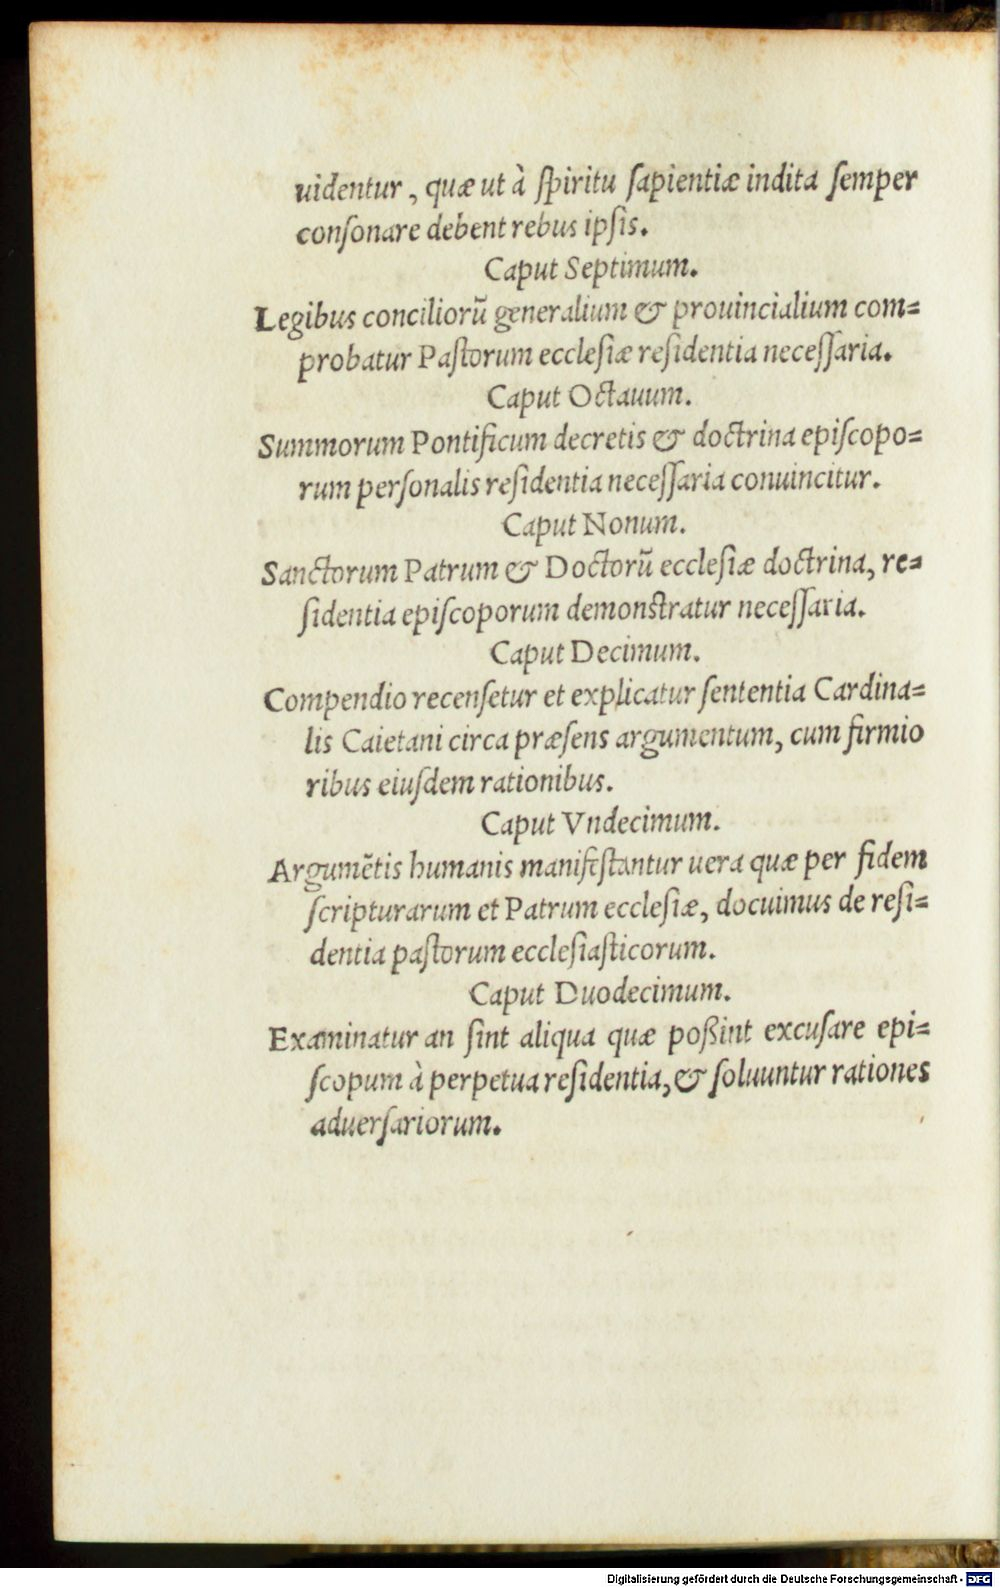 uidentur, quæ ut à ſpiritu ſapientiæ indita ſemper
conſonare debent rebus ipſis.
Caput Septimum.
Legibus conciliorũ generalium & prouincialium com=
probatur Paſtorum eccleſiæ reſidentia neceſſaria.
Caput Octauum.
Summorum Pontificum decretis & doctrina epiſcopo=
rum perſonalis reſidentia neceſſaria conuincitur.
Caput Nonum.
Sanctorum Patrum & Doctorũ eccleſiæ doctrina, re=
ſidentia epiſcoporum demonſtratur neceſſaria.
Caput Decimum.
Compendio recenſetur et explicatur ſententia Cardina=
lis Caietani circa præſens argumentum, cum firmio
ribus eiuſdem rationibus.
Caput Vndecimum.
Argumẽtis humanis manifeſtantur uera quæ per fidem
ſcripturarum et Patrum eccleſiæ, docuimus de reſi=
dentia paſtorum eccleſiaſticorum.
Caput Duodecimum.
Examinatur an ſint aliqua quæ poßint excuſare epi=
ſcopum à perpetua reſidentia, & ſoluuntur rationes
aduerſariorum.
Digitalisierung gefördert durch die Deutsche Forschungsgemeinschaft - DFG